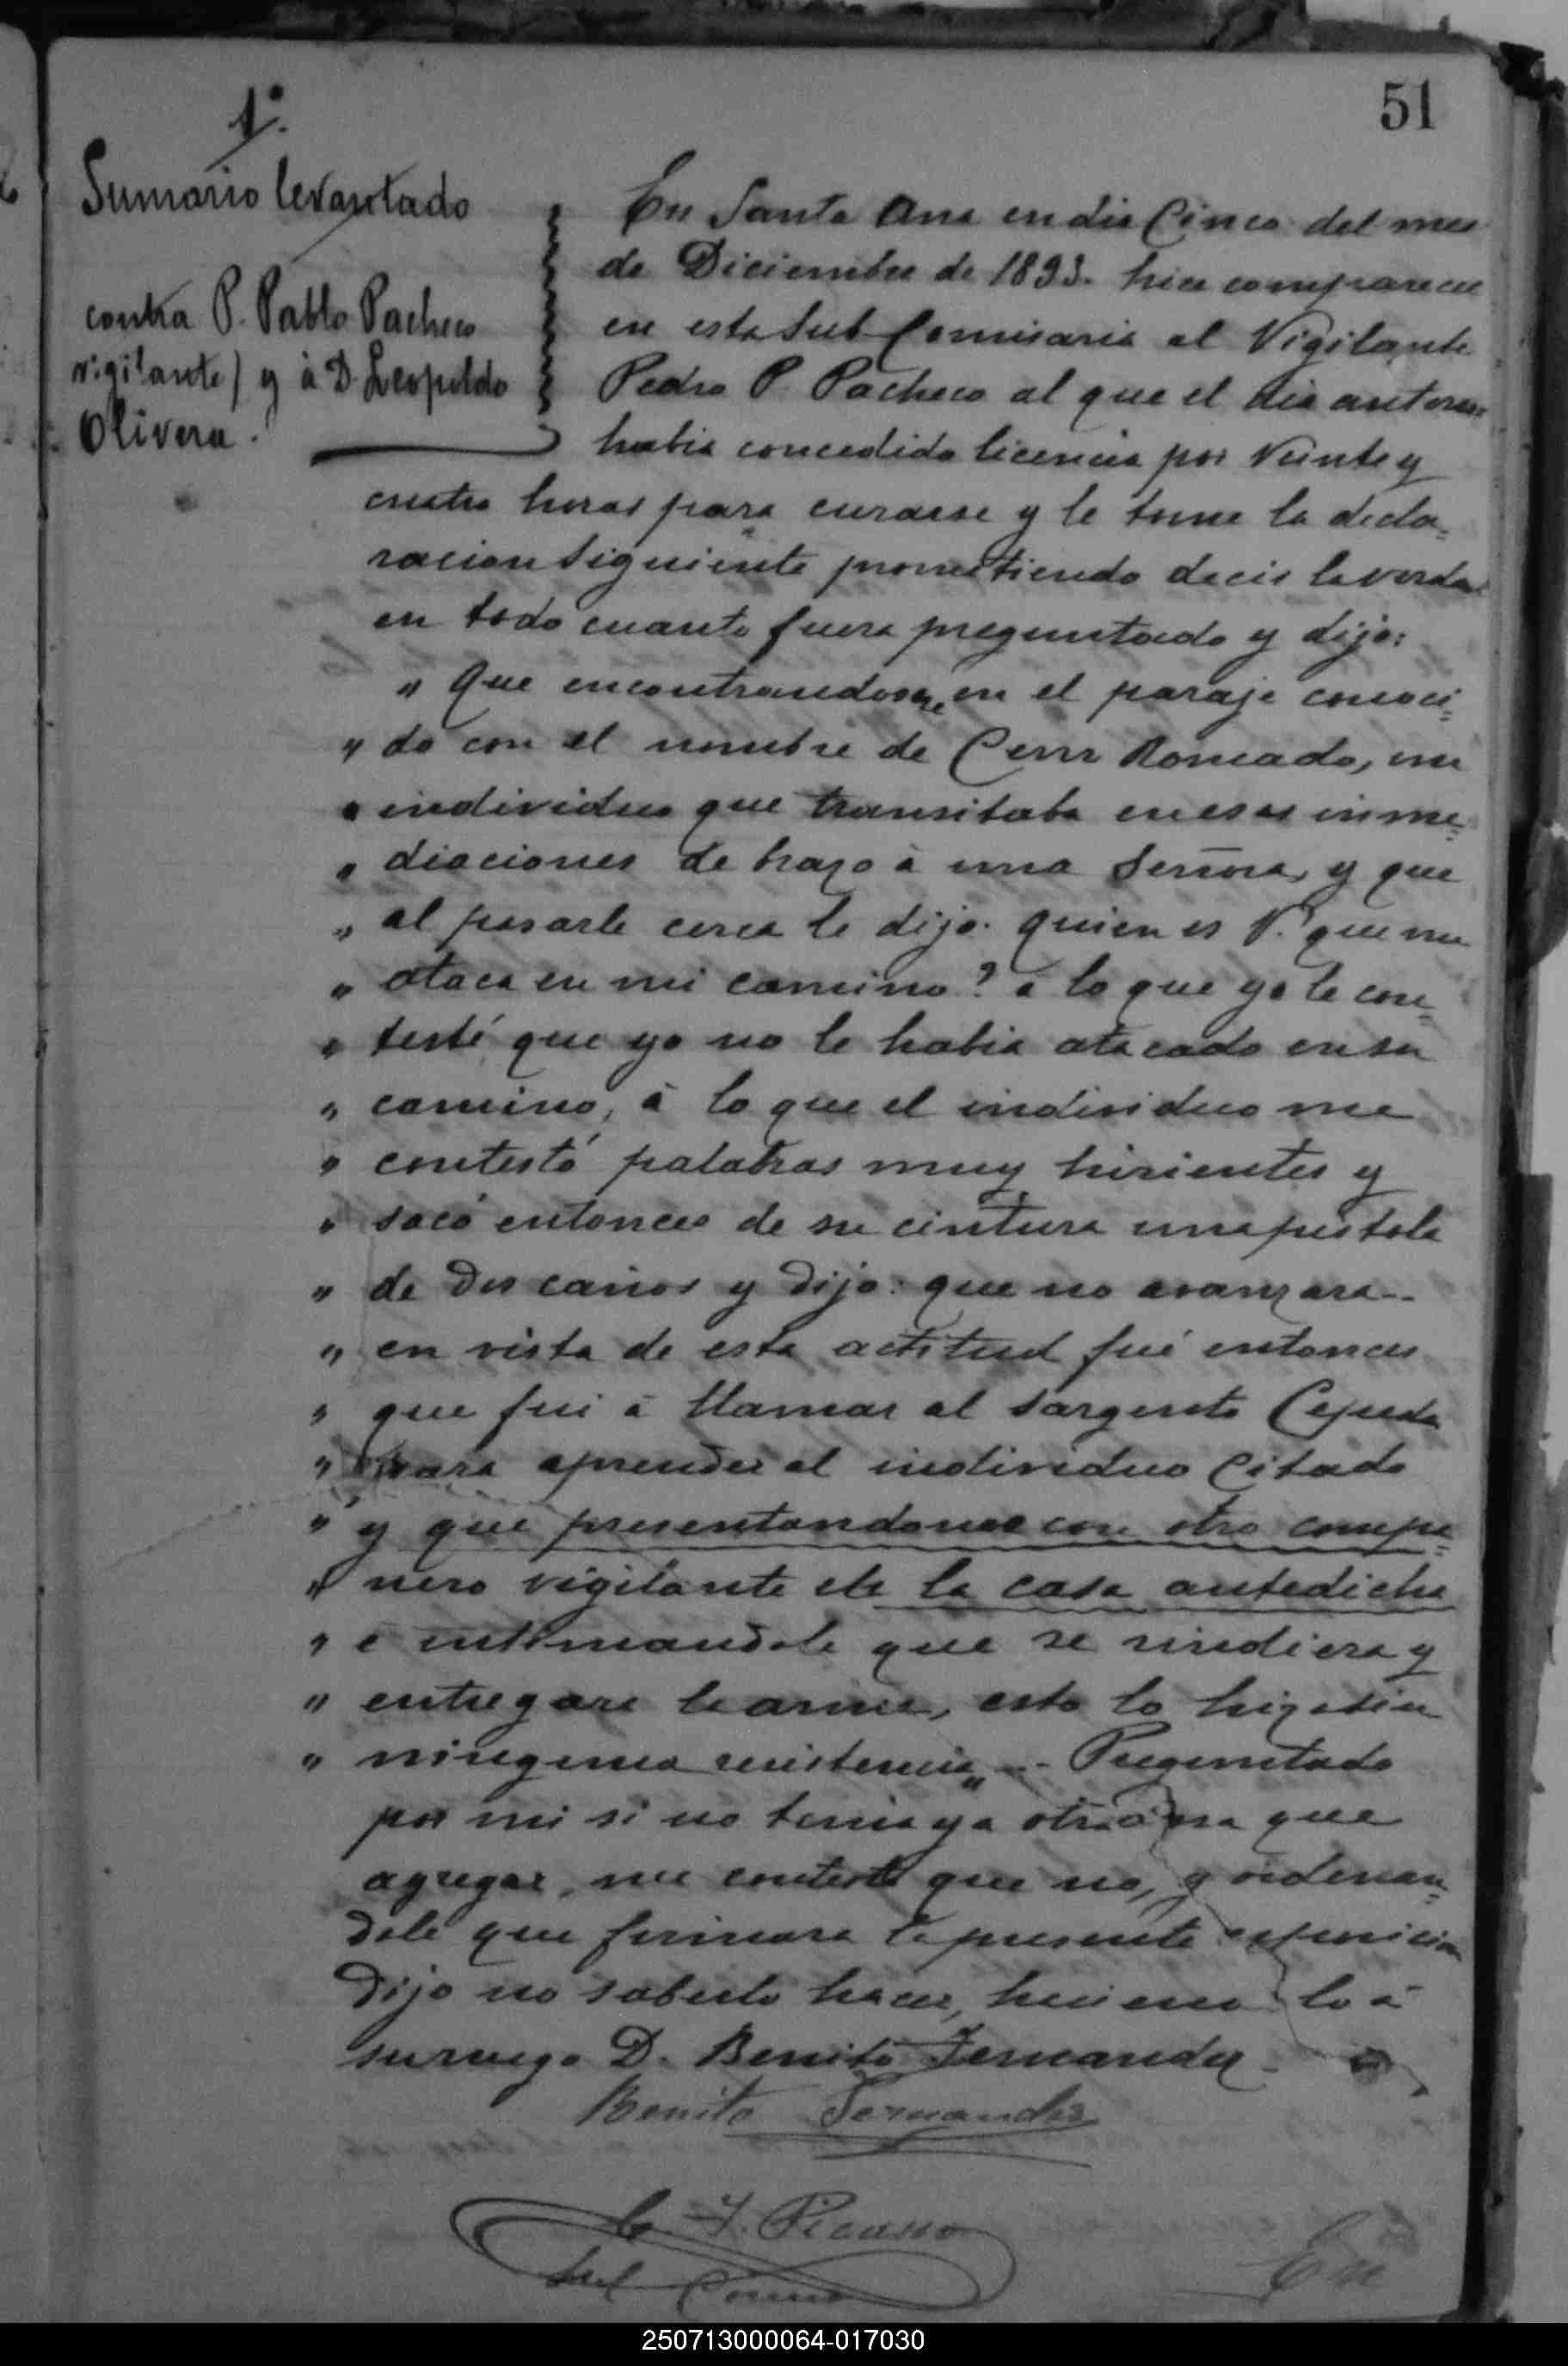 51
1º
Sumario levantado
contra P. Pablo Pacheco
vigilante) y à D. Leopoldo
Olivera.
En Santa Ana en dia Cinco del mes
de Diciembre de 1893. hice comparecer
en esta Sub Comisaria al Vigilante
Pedro P. Pacheco al que el dia anterior
habia concedido licencia por Veinte y
cuatro horas para curarse y le tome la decla=
racion siguiente prometiendo decir la verdad
en todo cuanto fuera preguntado y dijo:
" Que encontrandome en el paraje conoci=
" do con el nombre de Cerro Roncado, un
" individuo que transitaba en esas inme=
" diaciones de brazo à una Señora, y que
" al pasarle cerca le dijo. quien es V. que me
" ataca en mi camino? à lo que yo le con=
" testé que yo no le habia atacado en su
" camino, à lo que el individuo me
" contestó palabras muy hirientes y
" sacó entonces de su cintura una pistola
" de dos caños y dijo: que no avanzara--
" en vista de esta actitud fué entonces
" que fui à llamar al sargento Cepeda
" para aprender al individuo Citado
" y que presentandonos con otro compa=
" ñero vigilante de la casa antedicha
" è intimandole que se rindiera y
" entregara la arma, esto lo hizo sin
" ninguna resistencia" -- Preguntado
por mi si no tenia ya otra cosa que
agregar, me contestó que no, y ordenan=
dole que firmara la presente exposicion
Dijo no saberlo hacer, lo à
su ruego D. Benito Fernandez.
Benito Fernandez
J. Picasso
Sub Comiso
En
250713000064-017030